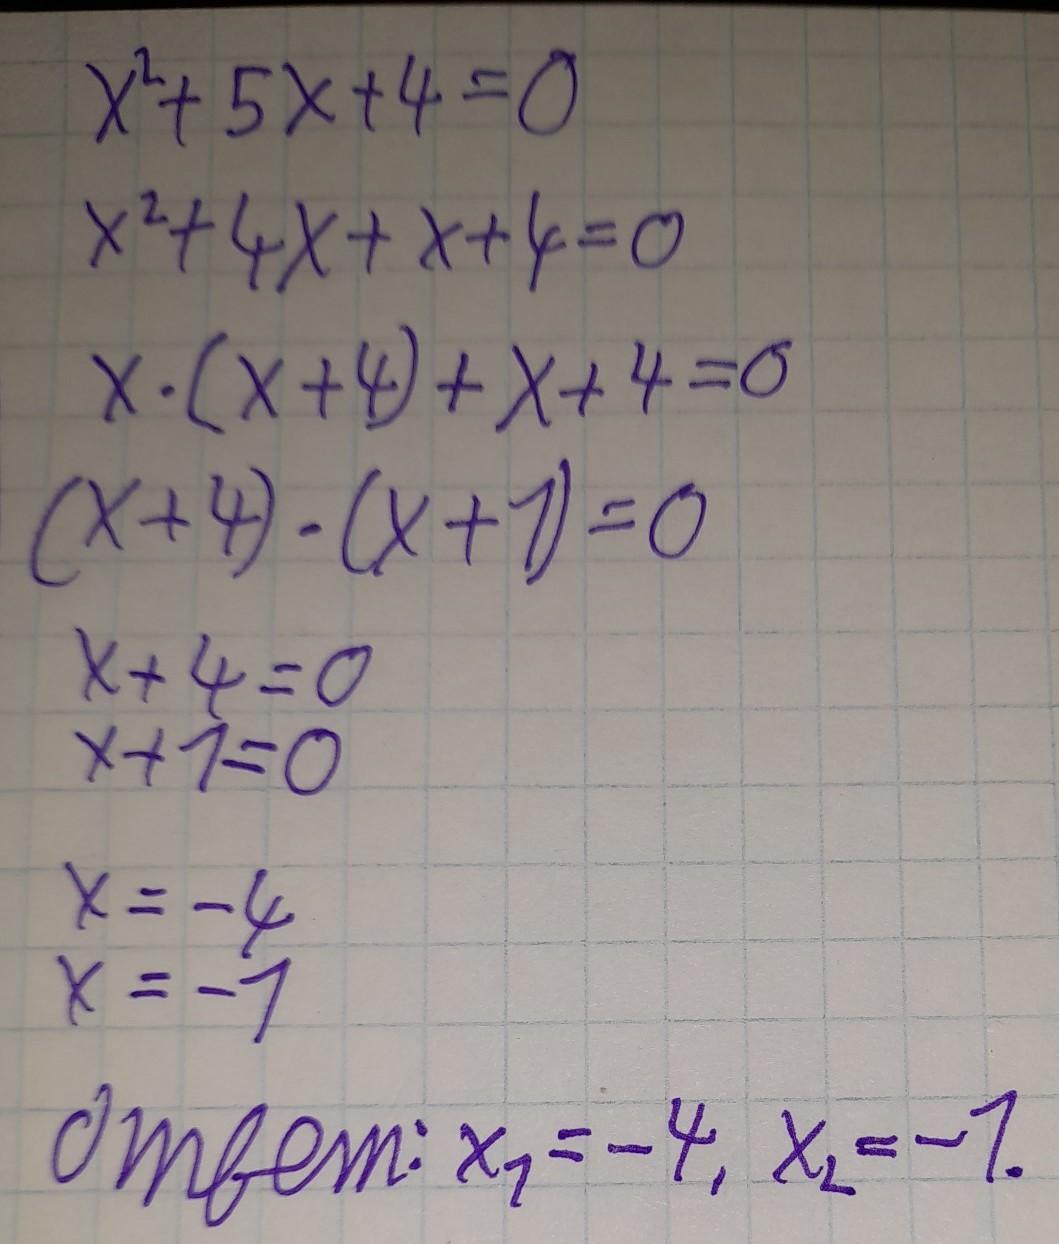 x²+5x+4=0
x²+4x+x+4=0
x·(x+4)+x+4=0
(x+4)·(x+1)=0
x+4=0
x+1=0
x=-4
x=-1
Ответ: x₁=-4, x₂=-1.